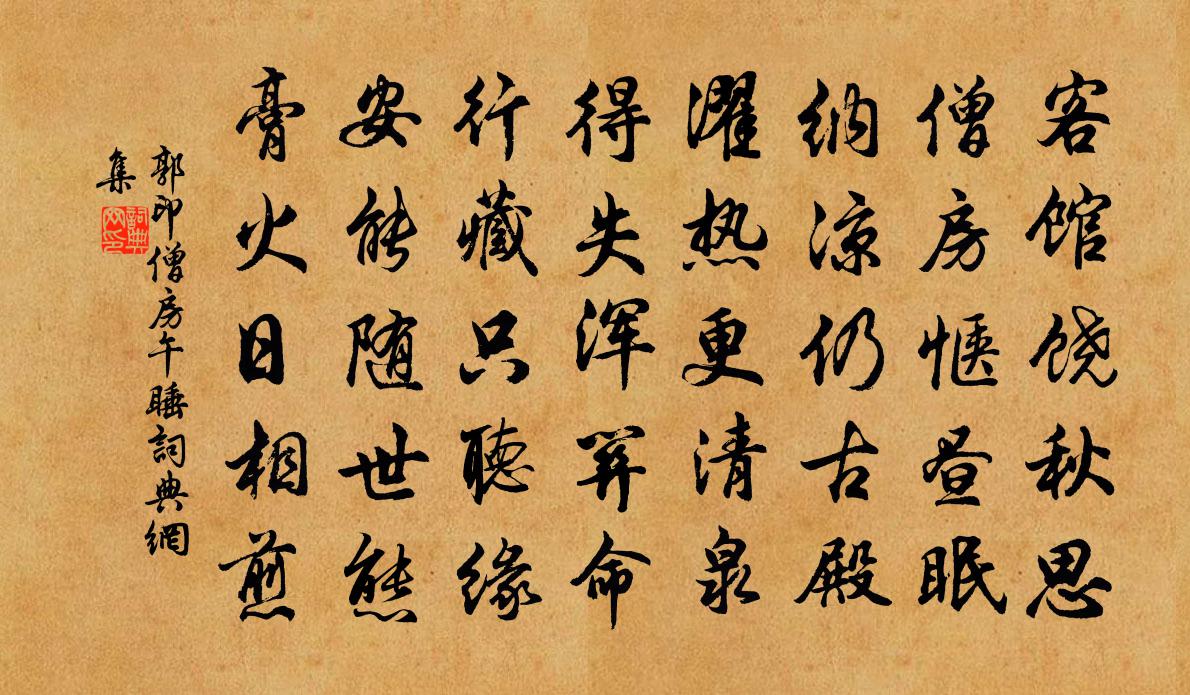 客馆饶秋思
僧房惬昼眠
纳凉仍古殿
濯热更清泉
得失浑關命
行藏只聽缘
安能随世態
膏火日相煎
郭印僧房午睡詞典網
集
詞典
网印